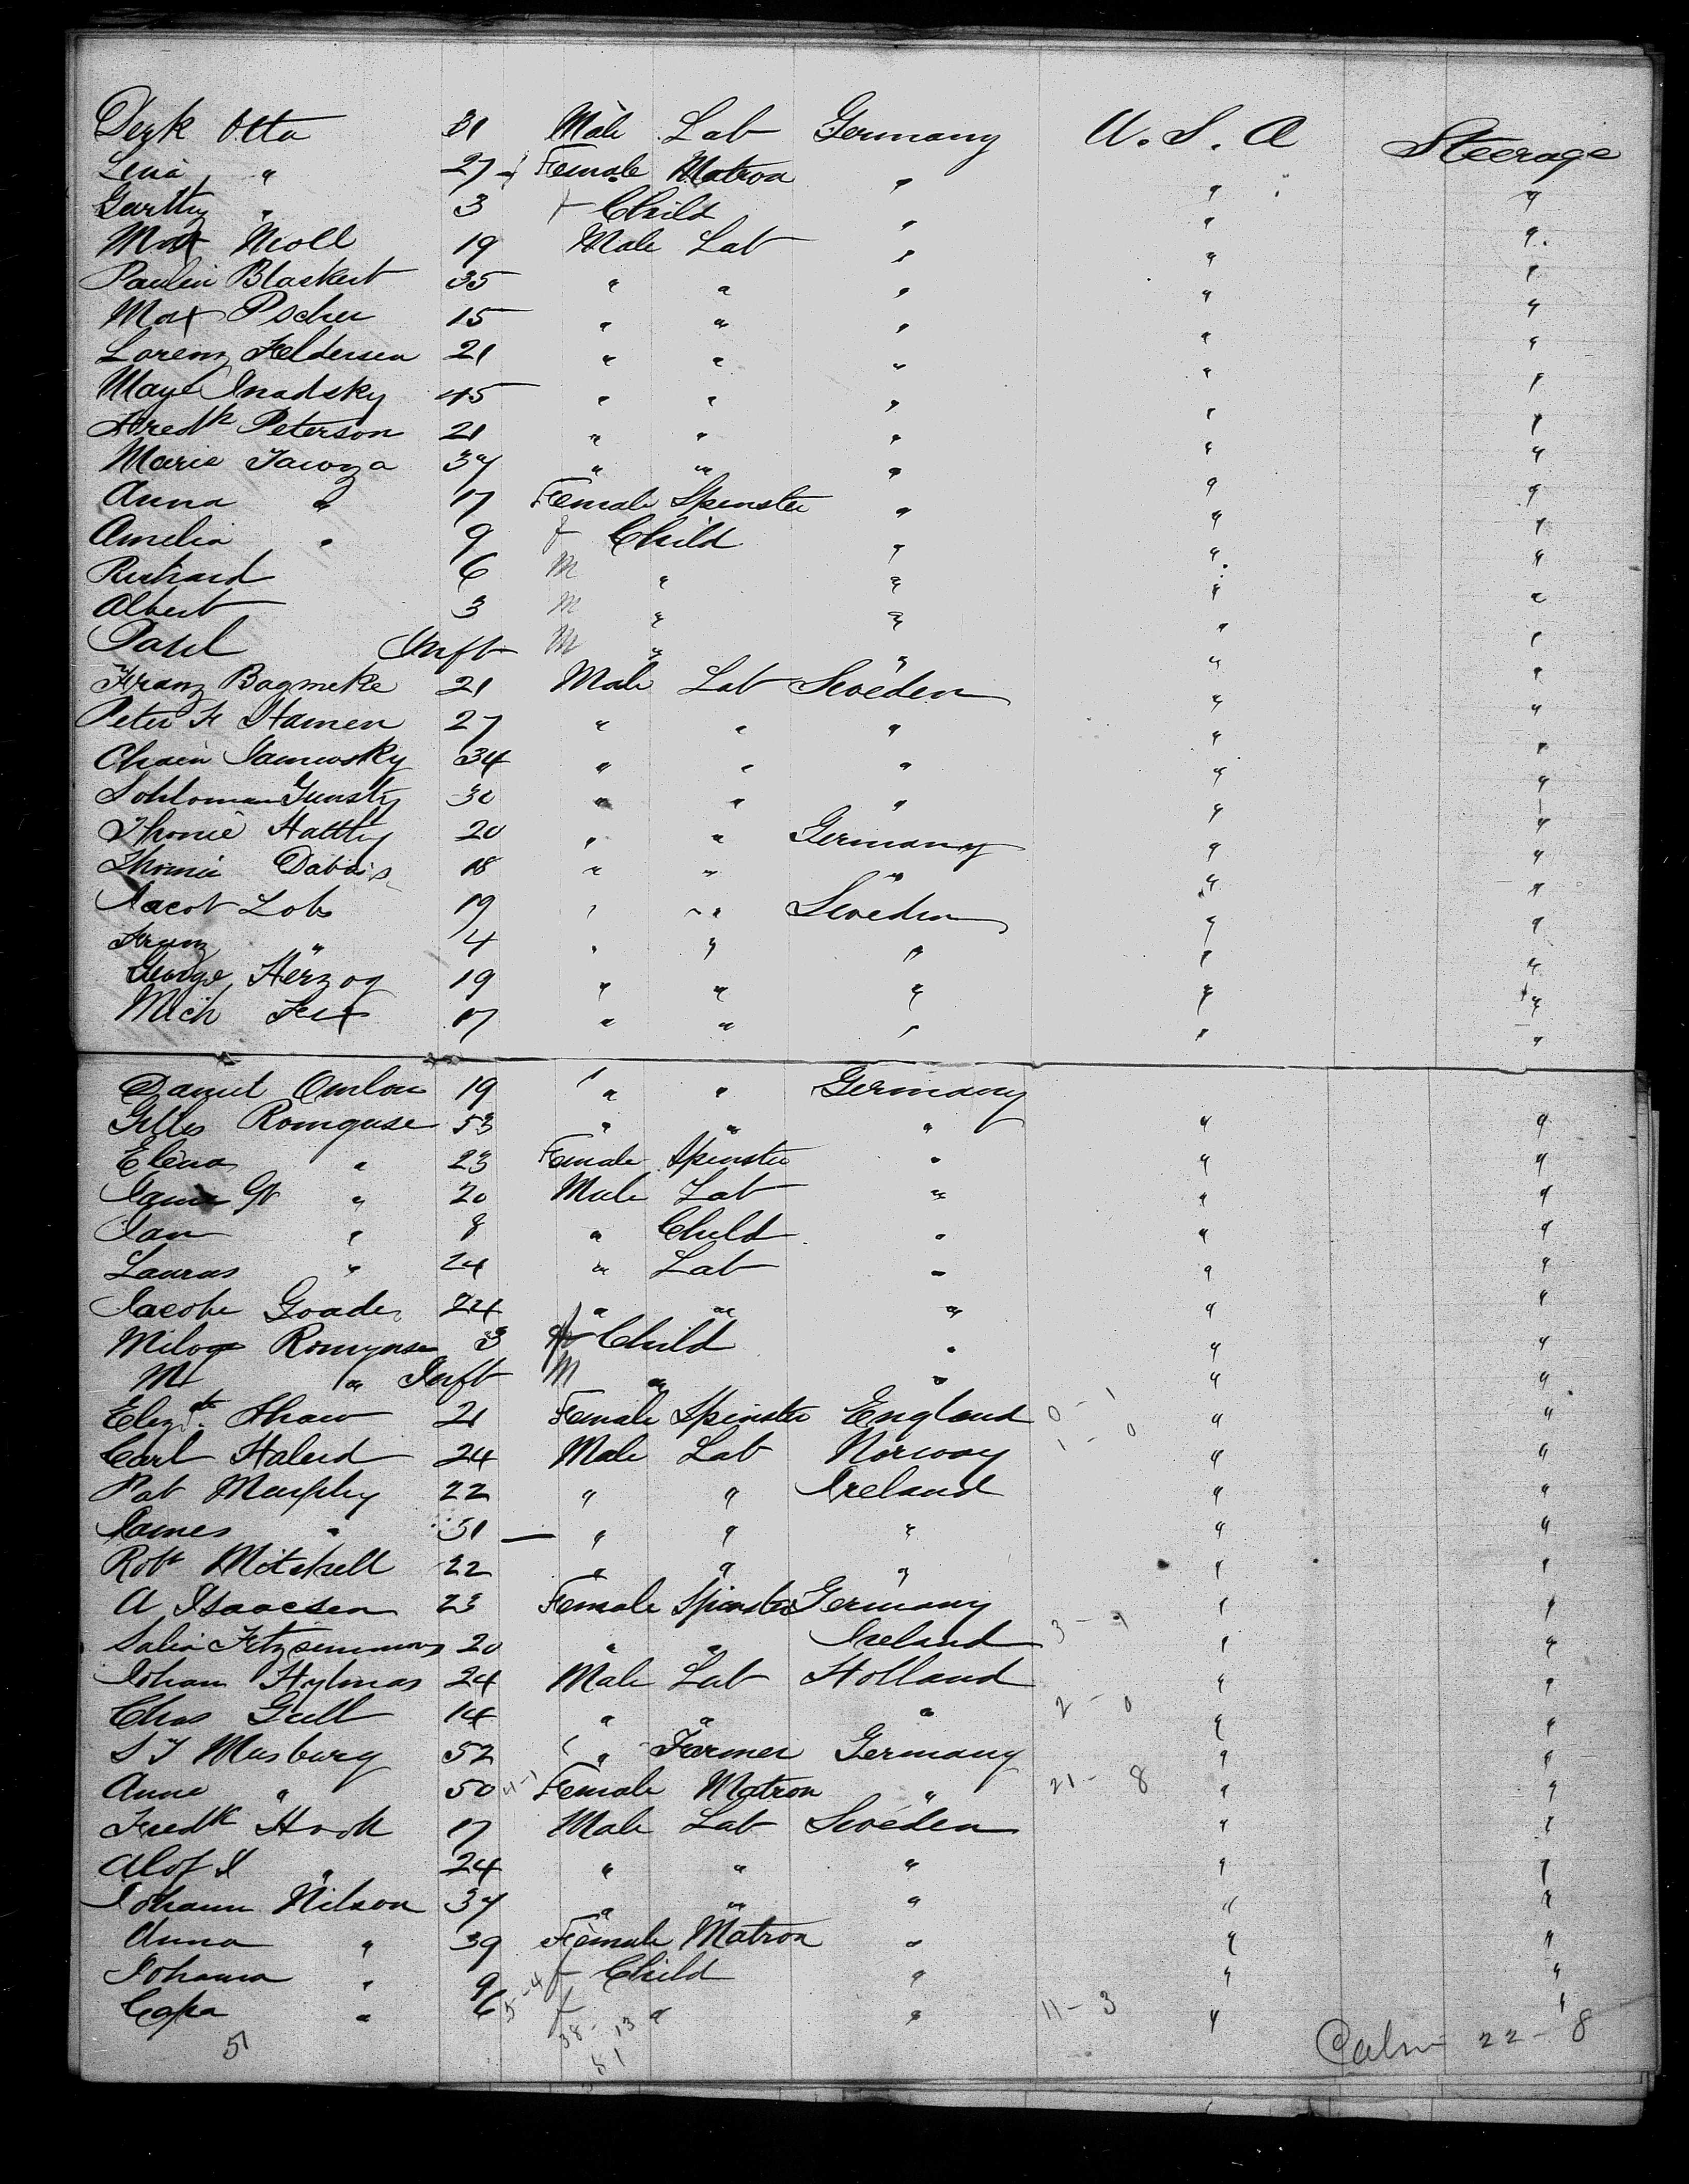 Derk Otta 31 Male Lab Germany U.S.A Steerage
Lena " 27 Female Matron " " "
Garthy " 3 f Child " " "
Max Moll 19 Male Lab " " "
Paulin Blaskert 35 " " " " "
Max Pscher 15 " " " " "
Lorenz Feldersen 21 " " " " "
Maye Inadsky 45 " " " " "
Fredk Peterson 21 " " " " "
Marie Jacoza 37 " " " " "
Anna " 17 Female Spinster " " "
Amelia " 9 f Child " " "
Richard 6 M " " " "
Albert 3 M " " " "
Paul Inft M " " " "
Franz Bagmeke 21 Male Lab Sweden " "
Peter F Hamen 27 " " " " "
Chain Janewsky 34 " " " " "
Sohloman Gunsty 30 " " " " "
Thonie Hattty 20 " " Germany " "
Thonie Dabois 18 " " " " "
Jacob Lob 19 " " Sweden " "
Franz " 4 " " " " "
George Herzog 19 " " " " "
Mich Fex 17 " " " " "
Daniel Omlou 19 " " Germany
Gilles Romguse 53 " " " " "
Elena " 23 Female Spinster " " "
" 20 Male Lab " " "
Jan " 8 " Child " " "
Lauras " 24 " Lab " " "
Jacobe Goade 24 " " " " "
Child " " "
M " Inft M " " " "
Elizth Shaw 21 Female Spinster England 0 - 1 " "
Carl Halerd 24 Male Lab Norway 1 - 0 " "
Pat Murphy 22 " " Ireland " "
James " 51 " " " " "
Robt Mitchell 22 " " " " "
A Isaacsen 23 Female Spinster Germany " "
Fitzsimmons 20 " " Ireland 3 - 1 " "
Johan Hylmas 24 Male Lab Holland " "
Chas Gull 14 " " " 2 - 0 " "
S J Musburg 52 " Farmer Germany " "
Anne " 50 Female Matron " 21 - 8 " "
Fredk Hook 17 Male Lab Sweden " "
Alof " 24 " " " " "
Johann Nilson 37 " " " " "
Anna " 39 Female Matron " " "
Johanna " 9 f Child " " "
" 6 f " " 11 - 3 " "
51 38 - 13 22 - 8
51